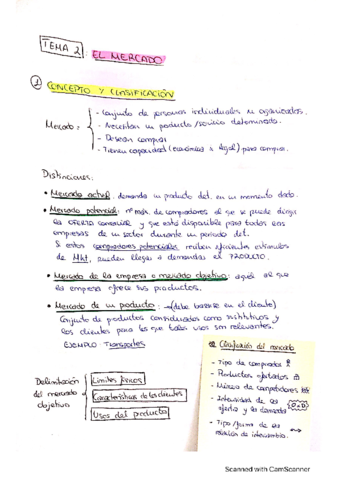 TEMA 2: EL MERCADO
1 CONCEPTO Y CLASIFICACIÓN
- Conjunto de personas individuales u organizadas.
Mercado: - Necesitan un producto/servicio determinado.
- Desean comprar
- Tienen capacidad (económica o legal) para comprar.
Distinciones:
• Mercado actual: demanda un producto det. en un momento dado.
• Mercado potencial: nº máx. de compradores al que se puede dirigir
la oferta comercial y que está disponible para todas las
empresas de un sector durante un periodo det.
Si estos compradores potenciales reciben suficientes estímulos
de Mkt, pueden llegar a demandar el PRODUCTO.
• Mercado de la empresa o mercado objetivo: aquel al que
la empresa ofrece sus productos.
• Mercado de un producto: (debe basarse en el cliente)
Conjunto de productos considerados como sustitutivos y
los clientes para los que tales usos son relevantes.
EJEMPLO: Transportes
Clasificación del mercado
- Tipo de comprador
- Productos ofertados
- Número de competidores
- Intensidad de la
oferta y la demanda (O=D)
- Tipo/forma de la
relación de intercambio.
Delimitación
del mercado
objetivo
Límites físicos
Características de los clientes
Usos del producto
Scanned with CamScanner